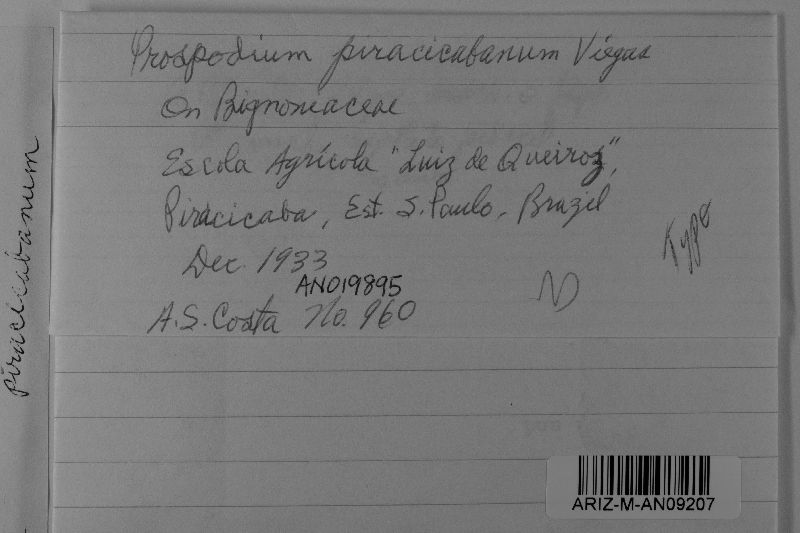 Prospodium piracicabanum Viégas
On Bignoniaceae
Escola Agrícola "Luiz de Queiroz",
Piracicaba, Est. S. Paulo, Brazil
Dec. 1933
AN019895
A.S. Costa No. 960
Type
piracicabanum
ARIZ-M-AN09207